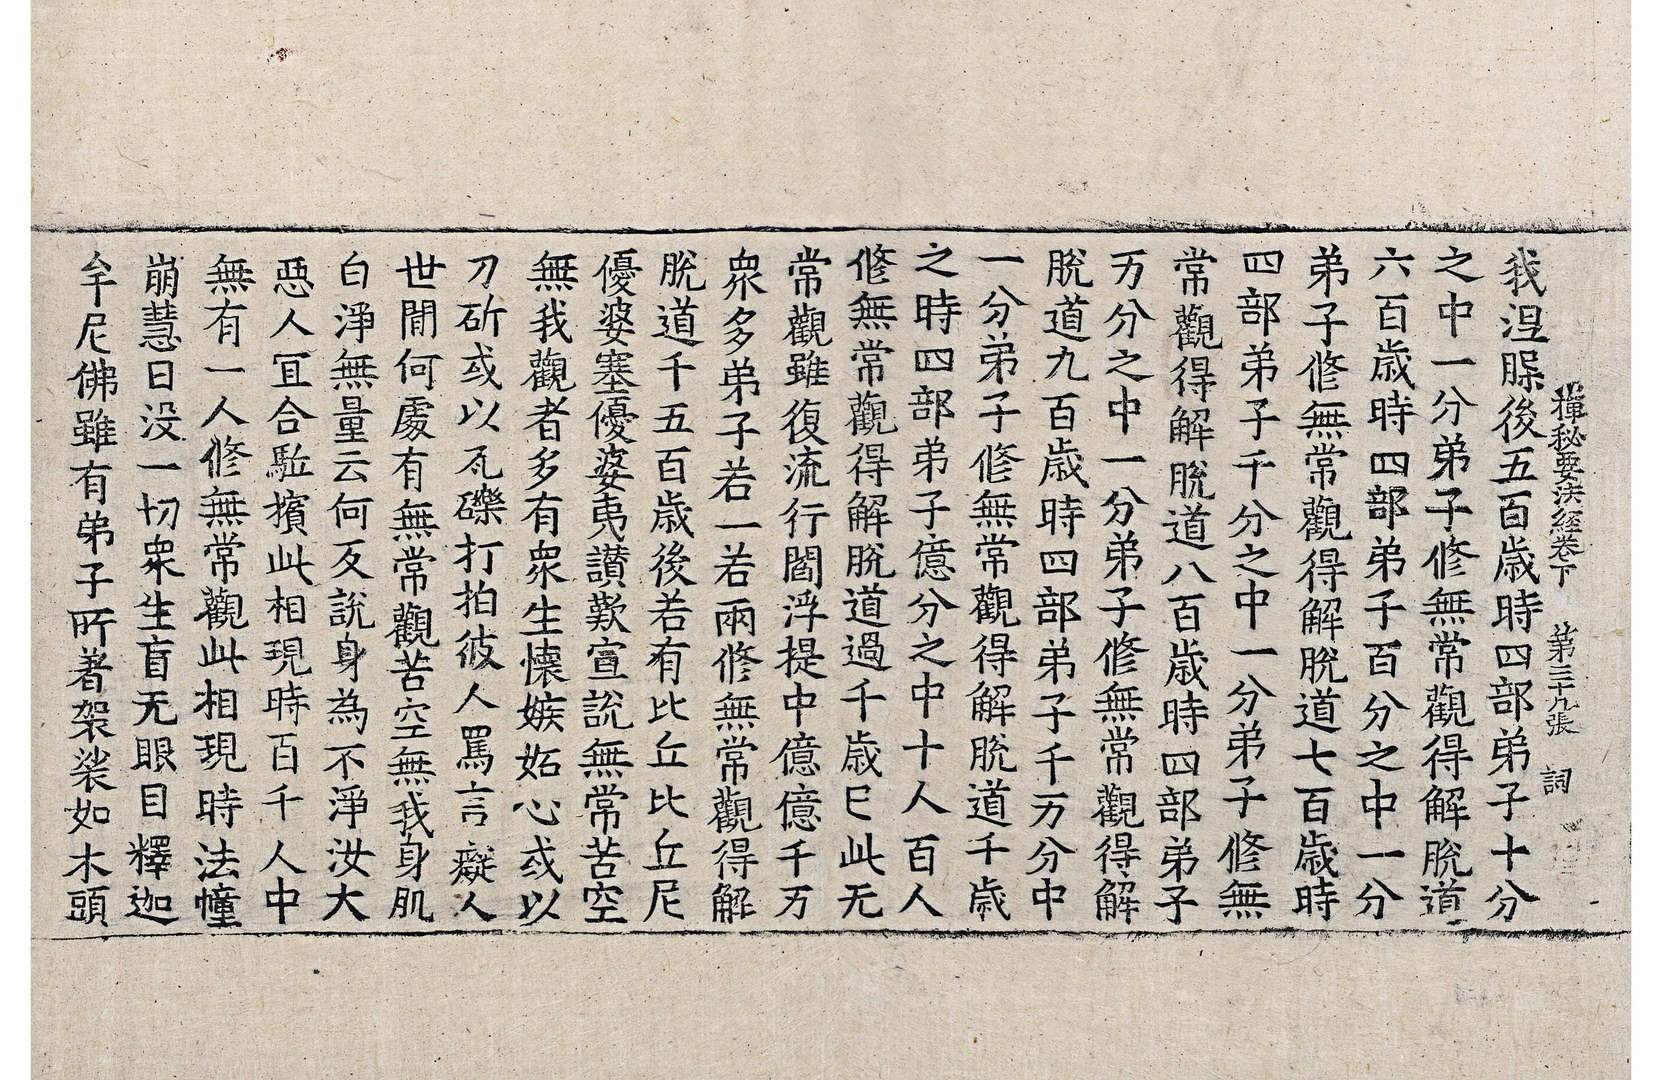 禪秘要法經卷下 第三十九張 詞
我涅槃後五百歲時四部弟子十分
之中一分弟子修無常觀得解脫道
六百歲時四部弟子百分之中一分
弟子修無常觀得解脫道七百歲時
四部弟子千分之中一分弟子修無
常觀得解脫道八百歲時四部弟子
万分之中一分弟子修無常觀得解
脫道九百歲時四部弟子千万分中
一分弟子修無常觀得解脫道千歲
之時四部弟子億分之中十人百人
修無常觀得解脫道過千歲已此无
常觀雖復流行閻浮提中億億千万
衆多弟子若一若兩修無常觀得解
脫道千五百歲後若有比丘比丘尼
優婆塞優婆夷讃歎宣說無常苦空
無我觀者多有衆生懷嫉妬心或以
刀斫或以瓦礫打拍彼人罵言癡人
世間何處有無常觀苦空無我身肌
白淨無量云何反說身為不淨汝大
惡人宜合駈擯此相現時百千人中
無有一人修無常觀此相現時法幢
崩慧日没一切衆生盲无眼目釋迦
牟尼佛雖有弟子所著袈裟如木頭